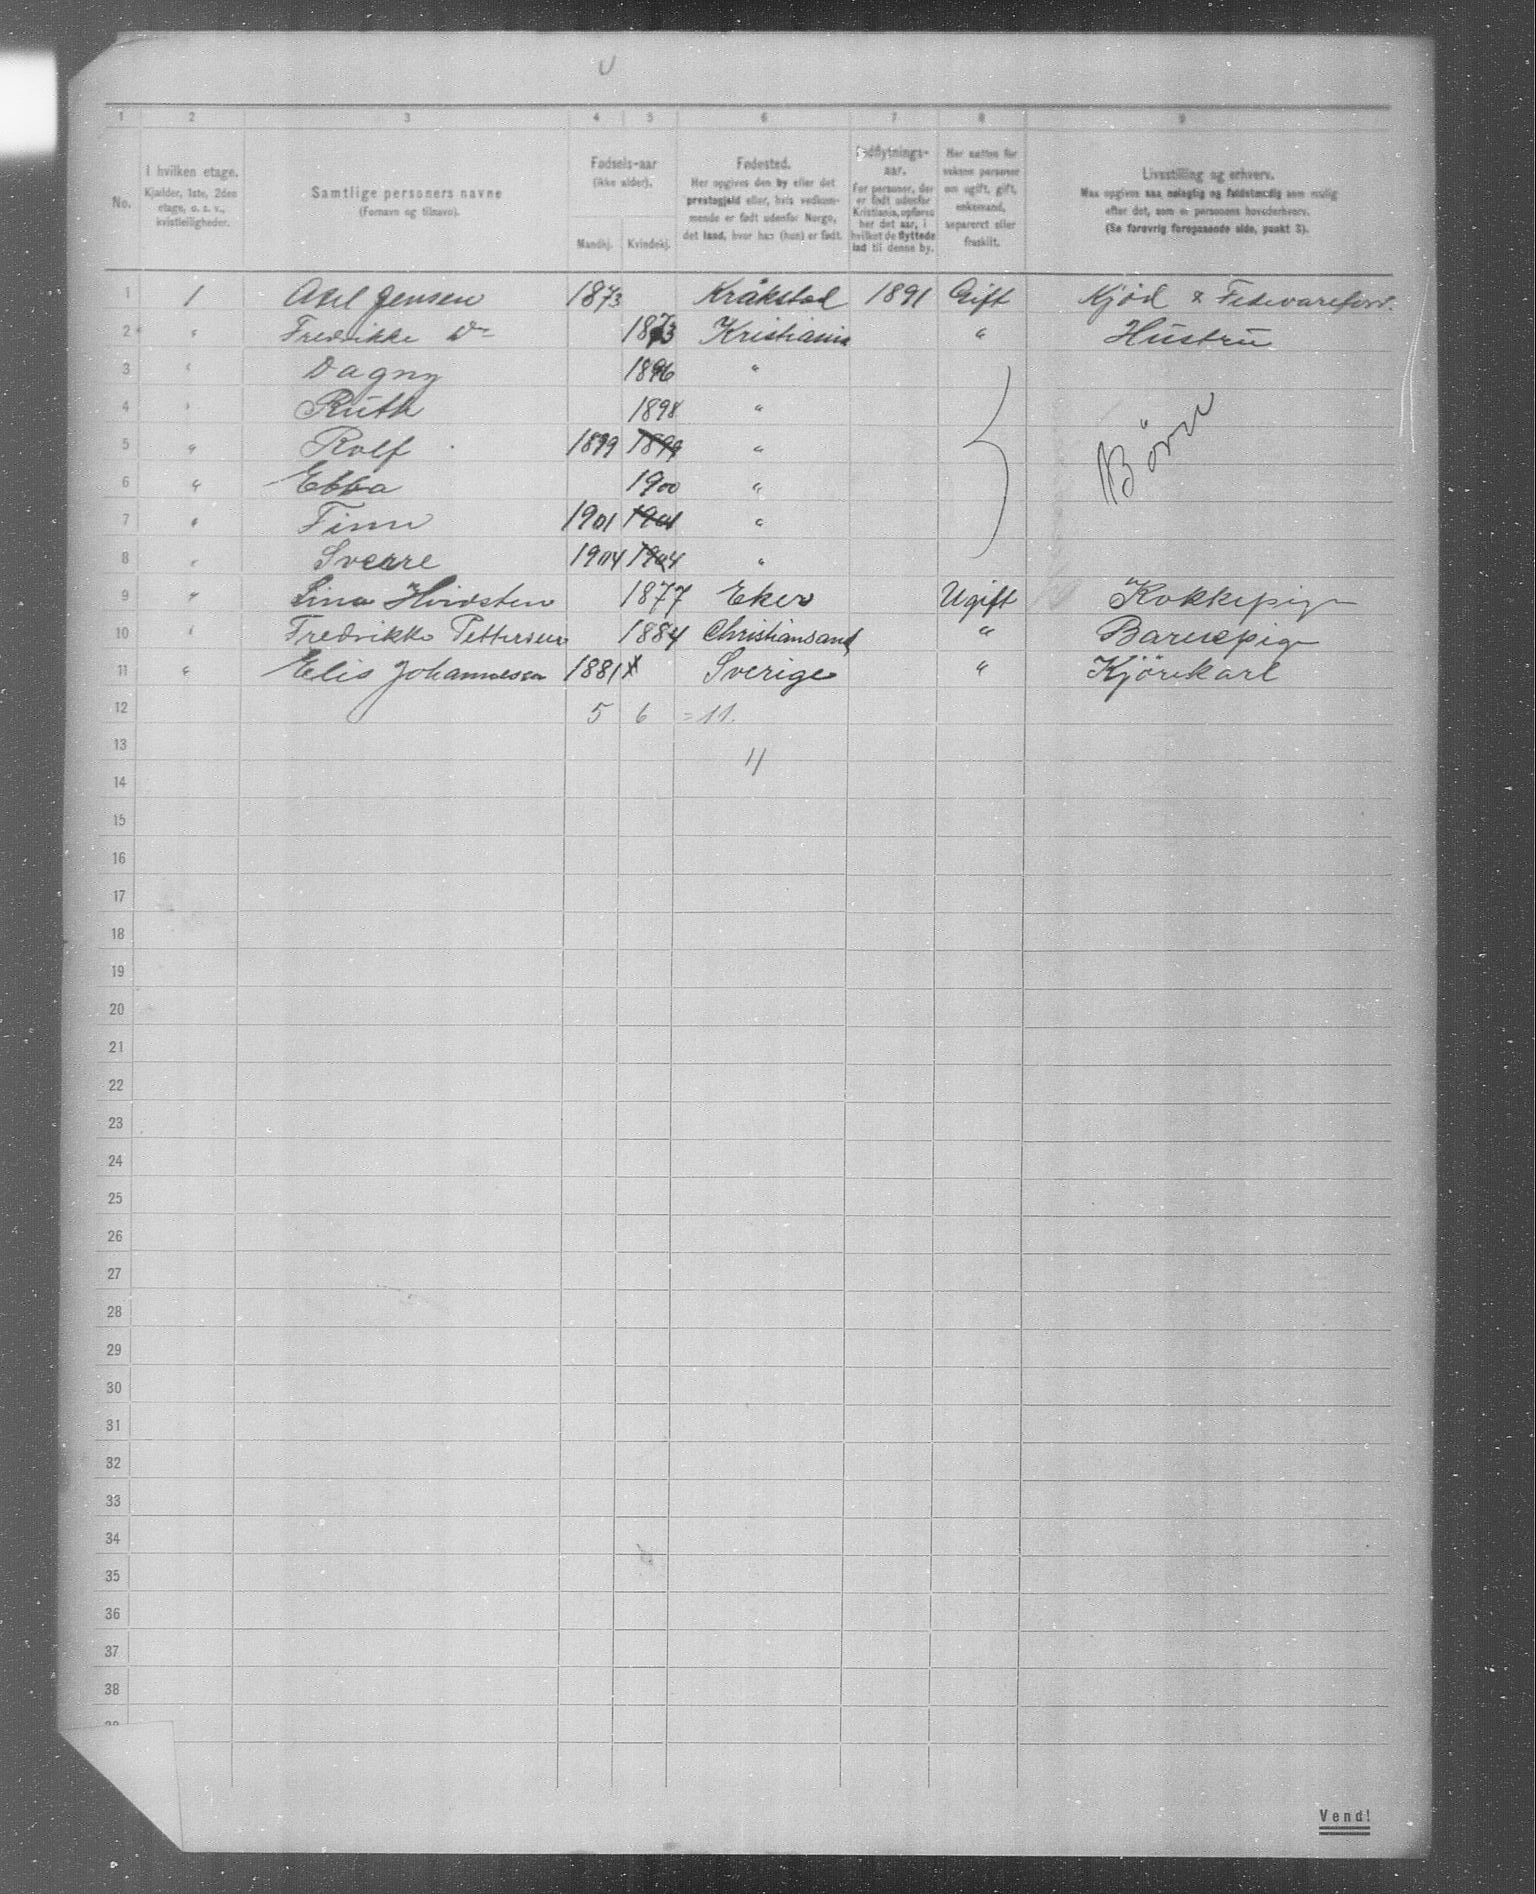 1 2 3 4 5 6 7 8 9
No.
I hvilken etage.
Kjælder, 1ste, 2den
etage, o. s. v.,
kvistleiligheder.
Samtlige personers navne
(Fornavn og tilnavn).
Fødsels-aar
(ikke alder).
Mandkj. Kvindekj.
Fødested.
Her opgives den by eller det
prestegjeld eller, hvis vedkom-
mende er født udenfor Norge,
det land, hvor han (hun) er født.
Indflytnings-
aar.
For personer, der
er født udenfor
Kristiania, opføres
her det aar, i
hvilket de flyttede
ind til denne by.
Her sættes for
voksne personer
om ugift, gift,
enkemand,
separeret eller
fraskilt.
Livsstilling og erhverv.
Maa opgives saa nøiagtig og fuldstændig som mulig
efter det, som er personens hovederhverv.
(Se forøvrig foregaaende side, punkt 3).
1 1 Axel Jensen 1873 Kråkstad 1891 Gift Kjød & Fedevareforr.
2 " Fredrikke Do 1873 Kristiania " Hustru
3 " Dagny 1896 "
4 " Ruth 1898 "
5 " Rolf 1899 1899 "
6 " Ebba 1900 "
7 " Finn 1901 1901 "
8 " Sverre 1904 1904 "
Børn
9 " Lina Hvidsten 1877 Eker Ugift Kokkepige
10 " Fredrikke Pettersen 1884 Christiansand " Barnepige
11 " Elis Johannesen 1881 x Sverige " Kjørekarl
12 5 6 = 11.
13 4
14
15
16
17
18
19
20
21
22
23
24
25
26
27
28
29
30
31
32
33
34
35
36
37
38
Vend!